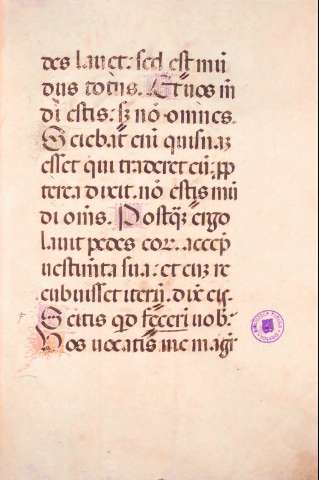 des lauet: sed est mū
dus totus. Et uos mū
di estis: sꝫ nō omnes.
Sciebat eni quisnaꝫ
esset qui traderet eū: ꝓp
terea dixit. nō estis mū
di om̄s. Postqꝫ ergo
lauit pedes eoꝝ. accep̄
uestimta sua: et cuꝫ re
cubuisset iterū. dix̄ eis.
Scitis qd fecerī uob̄.
Vos uocatis me magr̄